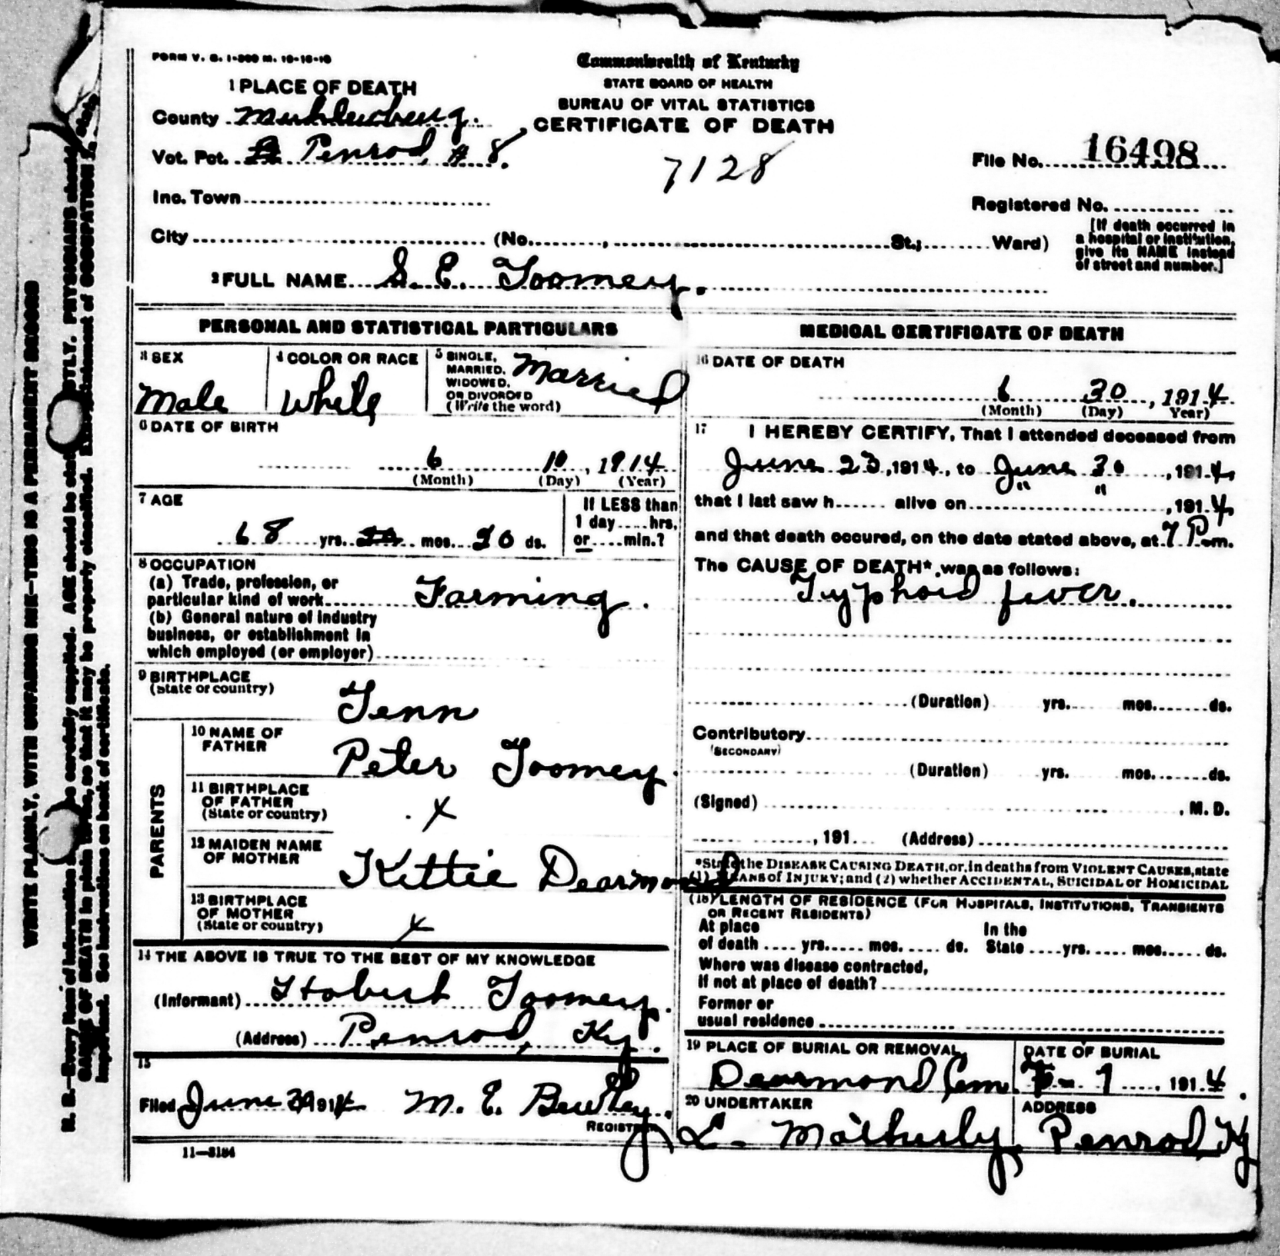 FORM V. S. 1-300 M. 10-10-10
Commonwealth of Kentucky
STATE BOARD OF HEALTH
BUREAU OF VITAL STATISTICS
CERTIFICATE OF DEATH
7128
1 PLACE OF DEATH
County Muhlenberg.
Vot. Pct. Penrod, # 8.
Inc. Town
City (No. , St.; Ward)
File No. 16498
Registered No.
[If death occurred in
a hospital or institution,
give its NAME instead
of street and number.]
2 FULL NAME S. E. Toomey.
PERSONAL AND STATISTICAL PARTICULARS
3 SEX
Male
4 COLOR OR RACE
White
5 SINGLE,
MARRIED,
WIDOWED,
OR DIVORCED
(Write the word)
Married
6 DATE OF BIRTH
6 10, 1914
(Month) (Day) (Year)
7 AGE
68 yrs. mos. 20 ds.
If LESS than
1 day.....hrs.
or.....min.?
8 OCCUPATION
(a) Trade, profession, or
particular kind of work Farming.
(b) General nature of industry
business, or establishment in
which employed (or employer)
9 BIRTHPLACE
(State or country)
Tenn
PARENTS
10 NAME OF
FATHER
Peter Toomey.
11 BIRTHPLACE
OF FATHER
(State or country)
x
12 MAIDEN NAME
OF MOTHER
Kittie Dearmond
13 BIRTHPLACE
OF MOTHER
(State or country)
x
14 THE ABOVE IS TRUE TO THE BEST OF MY KNOWLEDGE
(Informant) Hobert Toomey.
(Address) Penrod, Ky.
15
Filed June 191 M. E. Bewley.
REGISTRAR
11-3184
MEDICAL CERTIFICATE OF DEATH
16 DATE OF DEATH
6 30, 1914
(Month) (Day) (Year)
17 I HEREBY CERTIFY, That I attended deceased from
June 23, 1914, to June 30, 1914,
that I last saw h...... alive on " " , 1914,
and that death occured, on the date stated above, at 7 P.m.
The CAUSE OF DEATH* was as follows:
Typhoid fever.
(Duration) yrs. mos. ds.
Contributory
(SECONDARY)
(Duration) yrs. mos. ds.
(Signed) , M. D.
, 191 (Address)
*State the DISEASE CAUSING DEATH, or, in deaths from VIOLENT CAUSES, state
(1) MEANS of INJURY; and (2) whether ACCIDENTAL, SUICIDAL or HOMICIDAL
(18) LENGTH OF RESIDENCE (FOR HOSPITALS, INSTITUTIONS, TRANSIENTS
OR RECENT RESIDENTS)
At place In the
of death .... yrs. mos. ds. State yrs. mos. ds.
Where was disease contracted,
If not at place of death?
Former or
usual residence
19 PLACE OF BURIAL OR REMOVAL
Dearmond Cem
DATE OF BURIAL
7 - 1, 1914.
20 UNDERTAKER
L. Matherly,
ADDRESS
Penrod, Ky
WRITE PLAINLY, WITH UNFADING INK—THIS IS A PERMANENT RECORD
N. B.—Every item of information be carefully supplied. AGE should be stated EXACTLY. PHYSICIANS should
CAUSE OF DEATH in plain terms, so that it may be properly classified. Exact statement of OCCUPATION
important. See instructions on back of certificate.